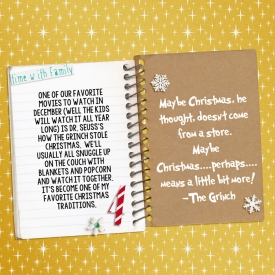 time with Family
ONE OF OUR FAVORITE
MOVIES TO WATCH IN
DECEMBER (WELL THE KIDS
WILL WATCH IT ALL YEAR
LONG) IS DR. SEUSS'S
HOW THE GRINCH STOLE
CHRISTMAS. WE'LL
USUALLY ALL SNUGGLE UP
ON THE COUCH WITH
BLANKETS AND POPCORN
AND WATCH IT TOGETHER.
IT'S BECOME ONE OF MY
FAVORITE CHRISTMAS
TRADITIONS.
Maybe Christmas, he
thought, doesn't come
from a store.
Maybe
Christmas....perhaps....
means a little bit more!
~The Grinch